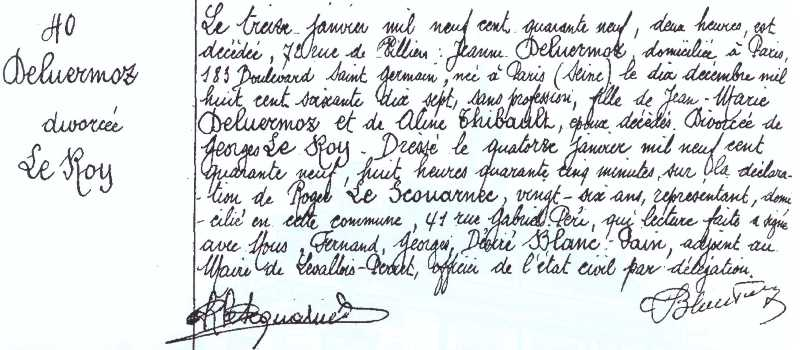 40
Deluermoz
divorcée
Le Roy
Le treize janvier mil neuf cent quarante neuf, deux heures, est
décédée, 72 rue de Villiers : Jeanne Deluermoz, domiciliée à Paris,
183 Boulevard Saint Germain, née à Paris (Seine) le dix décembre mil
huit cent soixante dix sept, sans profession, fille de Jean-Marie
Deluermoz et de Aline Thibault, époux décédés. Divorcée de
Georges Le Roy - Dressé le quatorze janvier mil neuf cent
quarante neuf, huit heures quarante cinq minutes, sur la déclara-
-tion de Roger Le Scouarnec, vingt-six ans, représentant, domi-
-cilié en cette commune, 41 rue Gabriel Péri, qui lecture faite a signé
avec Nous, Fernand, Georges, Désiré Blanc-Pain, adjoint au
Maire de Levallois-Perret, officier de l'état civil par délégation.